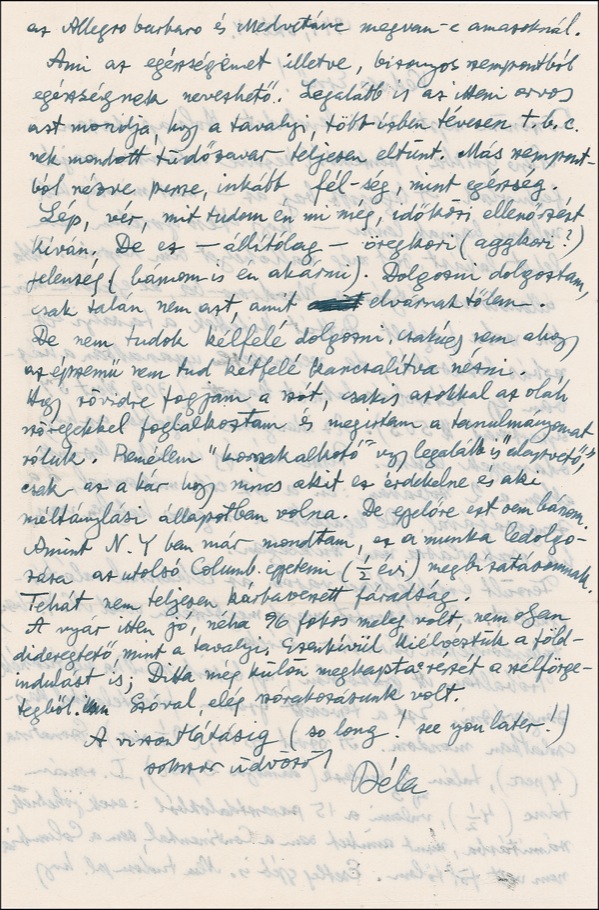 az Allegro barbaro és Medvetánc megvan-e amazoknál.
Ami az egészségemet illetve, bizonyos szempontból
egészségnek nevezhető. Legalább is az itteni orvos
azt mondja, hogy a tavalyi, több ízben tévesen t.b.c.
nek mondott tüdőzavar teljesen eltűnt. Más szempont-
ból nézve persze, inkább fél-ség, mint egészség.
Lép, vér, mit tudom én mi még, időközi ellenőrzést
kíván, De ez — állítólag — öregkori (aggkori?)
jelenség (bánom is én akármi). Dolgozni dolgoztam,
csak talán nem azt, amit elvárnak tőlem.
De nem tudok kétfelé dolgozni, csakúgy sem ahogy
az épszemű nem tud kétfelé kancsalítva nézni.
Hogy rövidre fogjam a szót, csakis azokkal az oláh
szövegekkel foglalkoztam és megírtam a tanulmányomat
róluk. Remélem "korszakalkotó" vagy legalább is "alapvető",
csak az a kár hogy nincs akit ez érdekelne és aki
méltánylási állapotban volna. De egelőre ezt sem bánom.
Amint N.Y ban már mondtam, ez a munka ledolgo-
zása az utolsó Columb. egyetemi (½ évi) megbízatásomnak.
Tehát nem teljesen kárbaveszett fáradság.
A nyár itten jó, néha 96 fokos meleg volt, nem olyan
dideregtető mint a tavalyi. Ezenkívül kiélveztük a föld-
indulást is; Ditta még külön megkapta a részét a szélförge-
tegből. Szóval, elég szórakozásunk volt.
A viszontlátásig (so long! see you later!)
sokszor üdvözöl
Béla